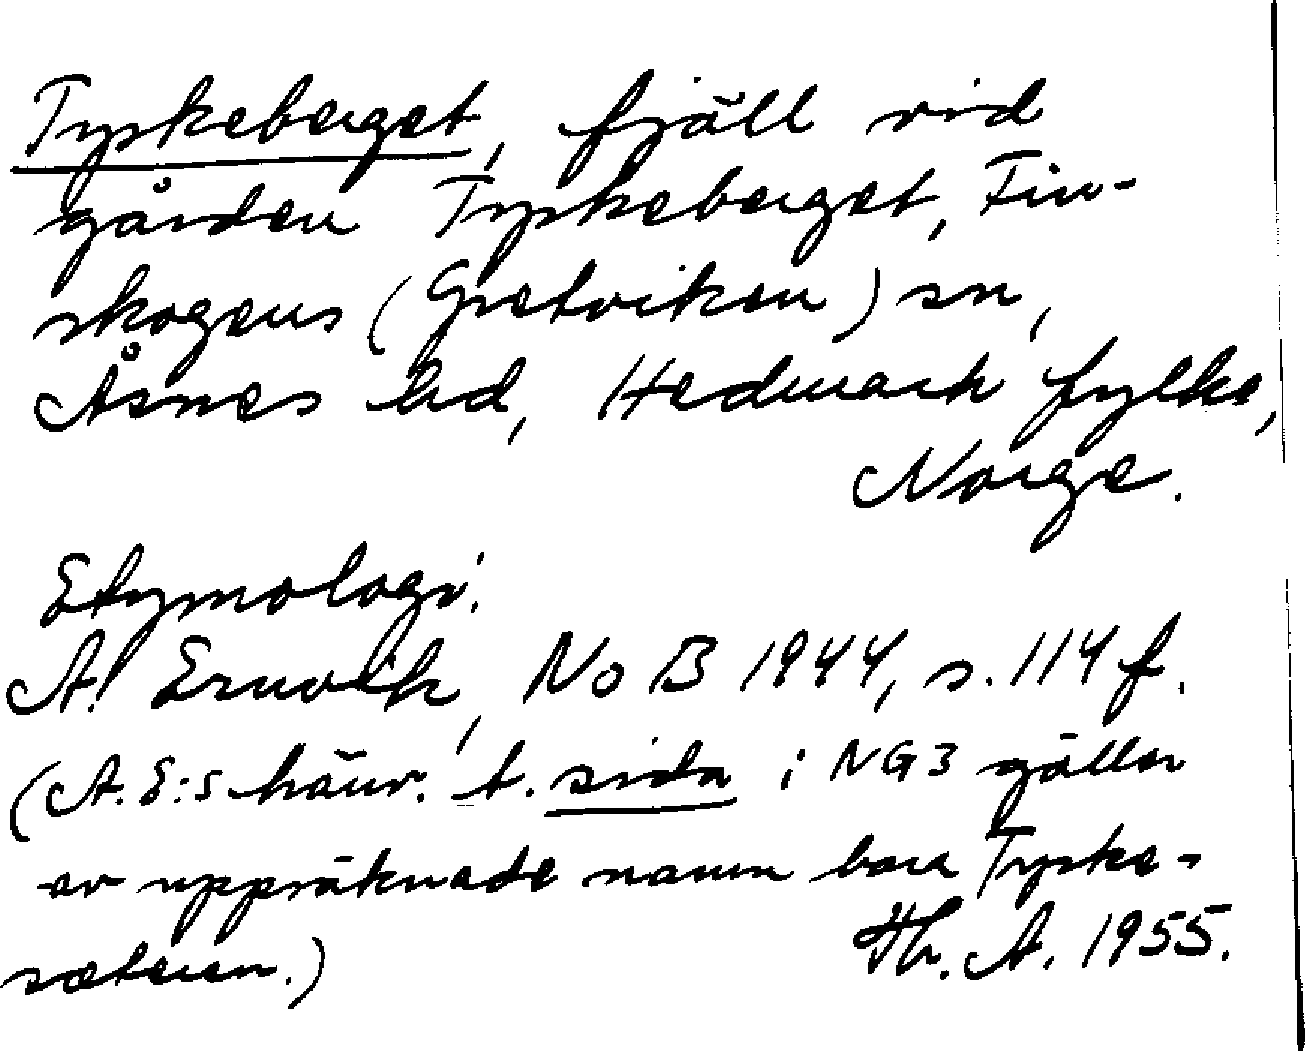 Tyskeberget, fjäll vid
gården Tyskeberget, Fin-
skogens (Gretviken) sn,
Åsnes hd, Hedmark fylke,
Norge.
Etymologi:
A. Ernvik, NoB 1944, s. 114 f.
(A. E:s hänv. t. sida i NG3 gäller
av uppräknade namn bara Tyske-
sæteren.)
Th. A. 1955.